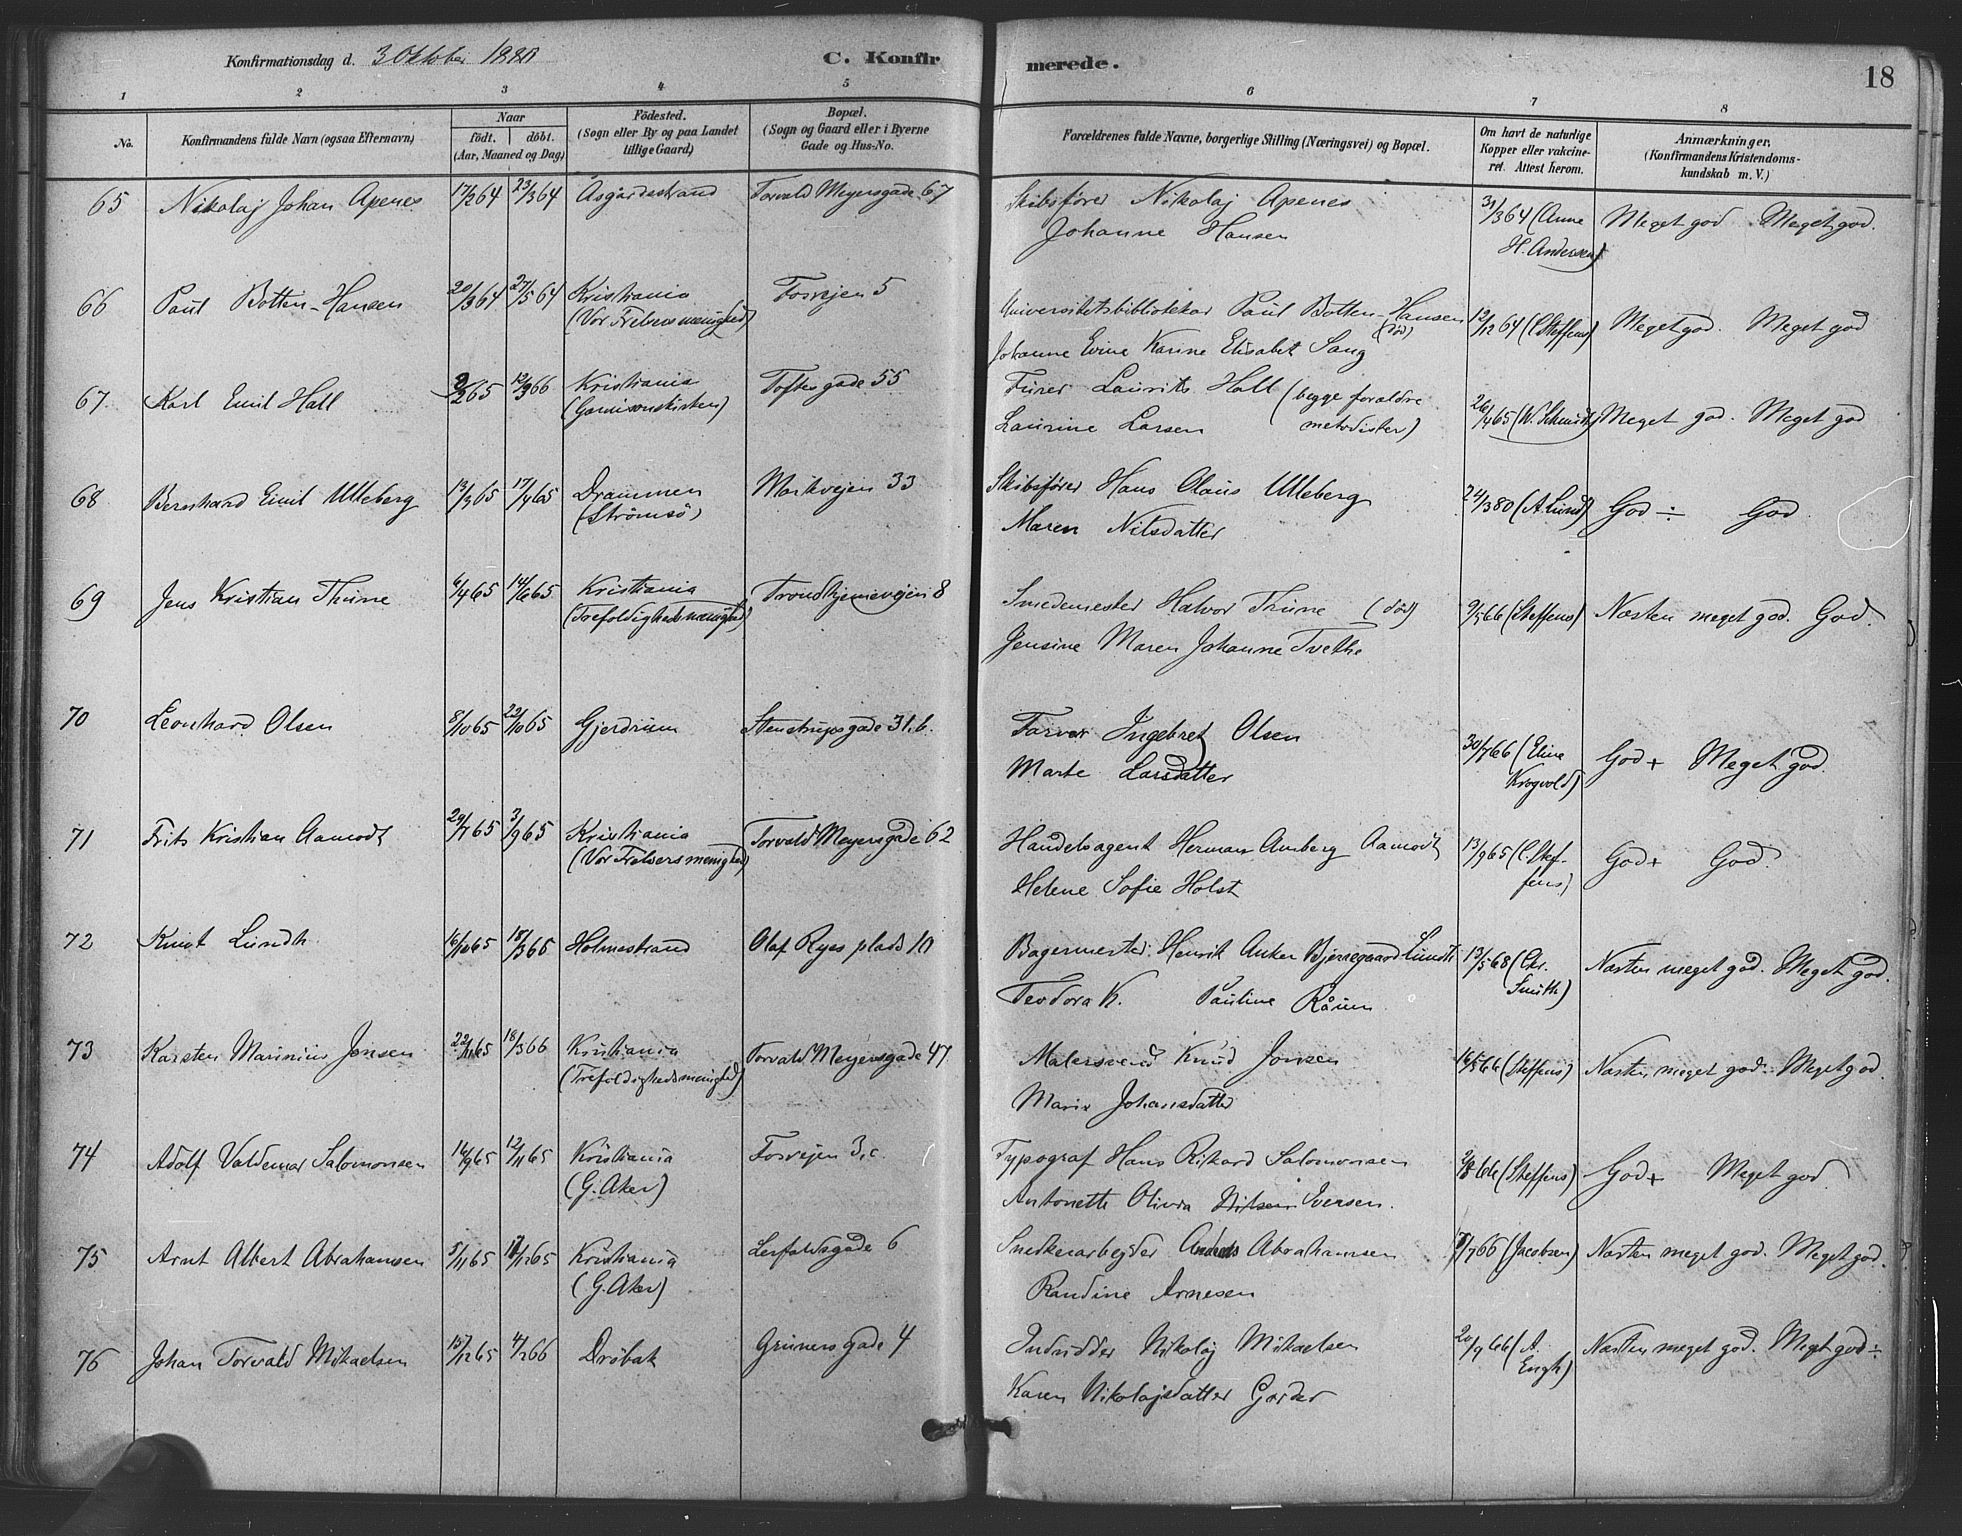 Konfirmationsdag d. 3 Oktober 1880 C. Konfirmerede. 18
1 2 3 4 5 6 7 8
No.
Konfirmandens fulde Navn (ogsaa Efternavn)
Naar
født. døbt.
(Aar, Maaned og Dag)
Födested.
(Sogn eller By og paa Landet
tillige Gaard)
Bopæl.
(Sogn og Gaard eller i Byerne
Gade og Hus-No.
Forældrenes fulde Navne, borgerlige Stilling (Næringsvei) og Bopæl.
Om havt de naturlige
Kopper eller vakcine-
ret. Attest herom.
Anmærkninger.
(Konfirmandens Kristendoms-
kundskab m. V.)
65 Nikolaj Johan Apenes 17/2 64 23/3 64 Åsgårdstrand Torvald Meyersgade 67 Skibsfører Nikolaj Apenes 31/3 64 (Anne Meget god Meget god.
Johanne Hansen H. Andersen)
66 Paul Botten-Hansen 20/3 64 27/5 64 Kristiania Fosvejen 5 Universitetsbibliotekar Paul Botten-Hansen 12/12 64 (C. Steffens) Meget god. Meget god
(Vor Frelsers menighed) (død)
Johanne Evine Karine Elisabet Sang
67. Karl Emil Hall 65 12/3 66 Kristiania Toftes gade 55 Furer Laurits Hall (begge forældre 26/4 65 (W. Schmidt) Meget god. Meget god
(Garnisonskirken) Laurine Larsen metodister)
68 Bernhard Emil Ulleberg 13/3 65 17/4 65 Drammen Markvejen 33 Skibsfører Hans Olaus Ulleberg 24/3 80 (A. Lund) God ÷ God
(Strömsö) Maren Nilsdatter
69 Jens Kristian Thune 6/4 65 14/6 65 Kristiania Trondhjemsvejen 8 Smedemester Halvor Thune (død) 9/5 66 (Steffens) Næsten meget god. God.
(Trefoldighedsmenighed) Jensine Maren Johanne Tvethe
70 Leonhard Olsen 8/10 65 22/10 65 Gjerdrum Stenstrupsgade 31.b. Farver Ingebret Olsen 30/7 66 (Eline God + Meget god.
Marte Larsdatter Krogvold)
71 Frits Kristian Aamodt 29/7 65 3/9 65 Kristiania Torvald Meyersgade 62 Handelsagent Herman Amberg Aamodt 13/9 65 (C. Stef- God + God.
(Vor Frelsers menighed) Helene Sofie Holst fens)
72 Knut Lundh 16/10 65 18/3 65 Holmestrand Olaf Ryes plads 10 Bagermester Henrik Anker Bjerregaard Lundh 13/5 68 (Chr. Næsten meget god. Meget god.
Teodora K. Pauline Råum Smith)
73 Karsten Marinius Jensen 22/11 65 18/3 66 Kristiania Torvald Meyersgade 47 Malersvend Knud Jensen 16/5 66 (Steffens) Næsten meget god. Meget god.
(Trefoldighedsmenighed) Marie Johansdatter
74 Adolf Valdemar Salomonsen 16/9 65 12/11 65 Kristiania Fosvejen 3.c. Typograf Hans Rikard Salomonsen 66 (Steffens) God + Meget god
(G. Aker) Antonette Olivia Nilsen Iversen.
75 Arnt Albert Abrahamsen 5/11 65 65 Kristiania Lerfaldsgade 6 Snedkerarbejder Anders Abrahamsen 66 (Jacobsen) Næsten meget god. Meget god.
(G. Aker) Randine Arnesen
76 Johan Torvald Mikaelsen 15/12 65 4/2 66 Dröbak Gruners gade 4 Nikolaj Mikaelsen 20/9 66 (A. Næsten meget god. Meget god ÷
Karen Nikolajsdatter Engh)